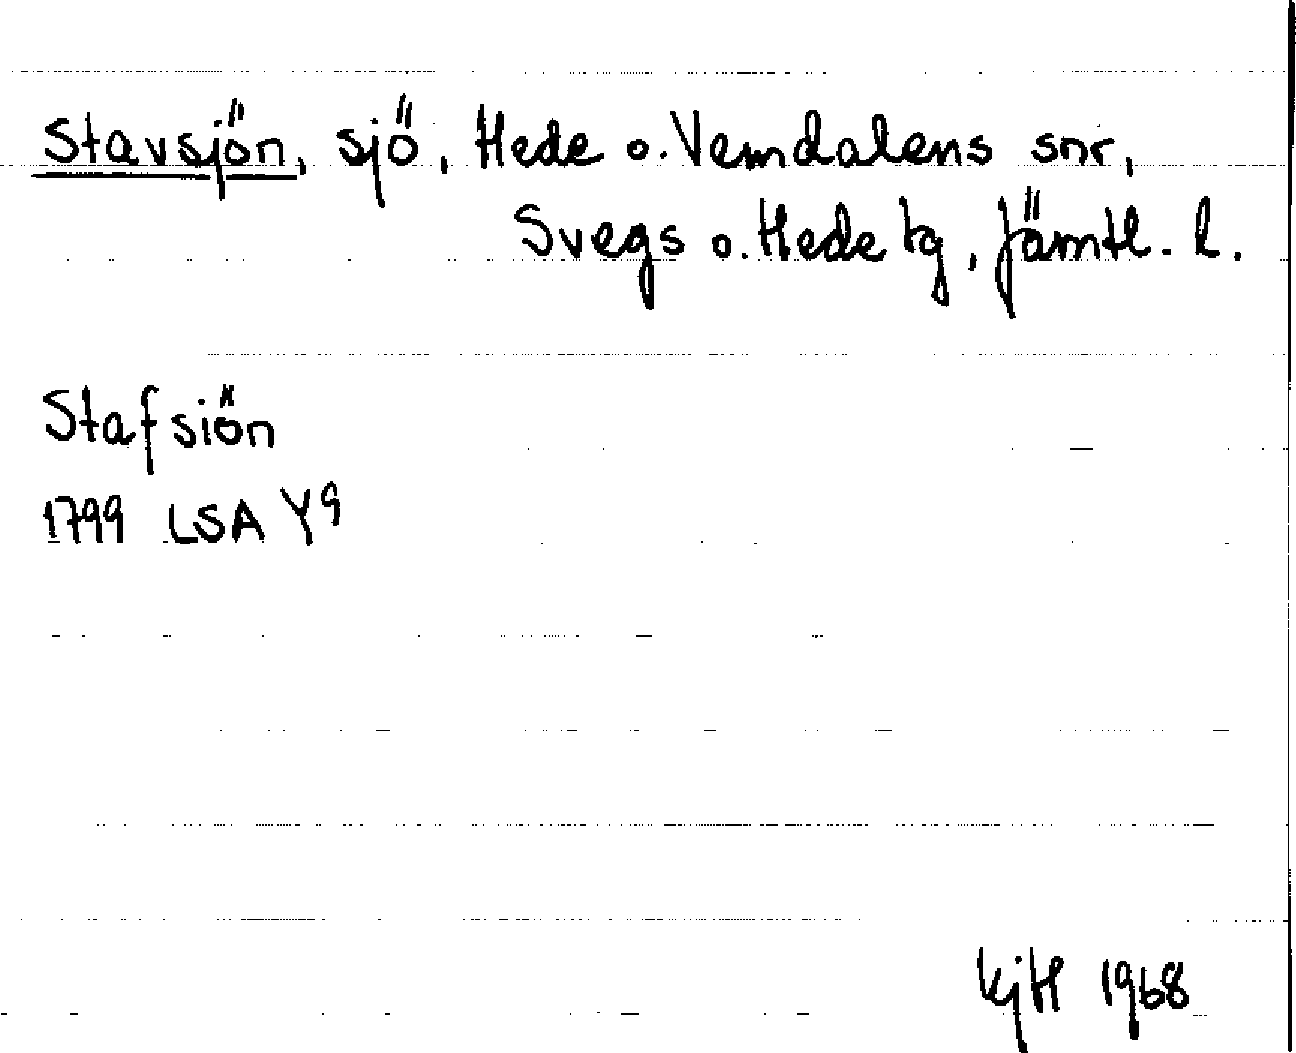 Stavsjön, sjö, Hede o. Vemdalens snr,
Svegs o. Hede tg, Jämtl. l.
Stafsiön
1799 LSA Y9
KjH 1968